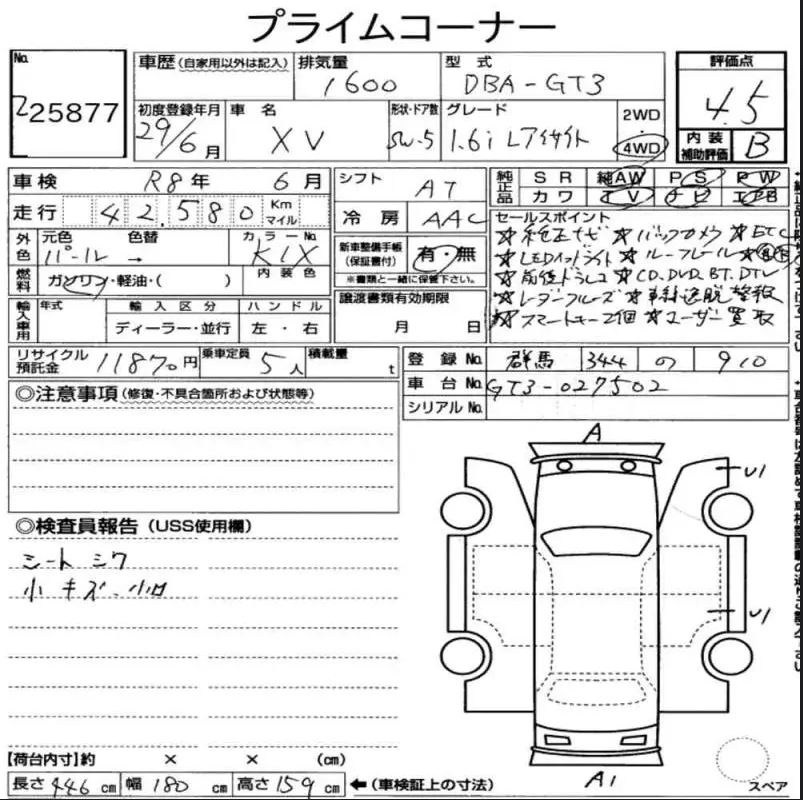 プライムコーナー
No. 225877
車歴 (自家用以外は記入)
排気量 1600
型式 DBA-GT3
評価点 4.5
初度登録年月 29/6月
車名 XV
形状・ドア数 SW.5
グレード 1.6i Lアイサイト
2WD
4WD
内装補助評価 B
車検 R8年 6月
シフト AT
純正品 SR 純AW PS PW
カワ TV ナビ エアB
走行 42,580 Km マイル
冷房 AAC
セールスポイント
外色 元色 パール 色替 →
カラーNo. K1X
新車整備手帳(保証書付) 有・無
※書類と一緒に保管下さい。
★純正ナビ ★バックカメラ ★ETC
★LEDヘッドライト ★ルーフレール
燃料 ガソリン・軽油・( )
内装色
★前後ドラレコ ★CD.DVD.BT.DTV
輸入車用 年式
輸入区分 ディーラー・並行
ハンドル 左・右
譲渡書類有効期限
月 日
★レーダークルーズ ★車線逸脱警報
★スマートキー2個 ★ユーザー買取
リサイクル預託金 11870円
乗車定員 5人
積載量 t
登録No. 群馬 344 の 910
車台No. GT3-027502
シリアルNo.
◎注意事項 (修復・不具合箇所および状態等)
◎検査員報告 (USS使用欄)
シート シワ
小キズ.小凹
A
U1
U1
A1
スペア
【荷台内寸】約 × × (cm)
長さ 446 cm 幅 180 cm 高さ 159 cm ←(車検証上の寸法)